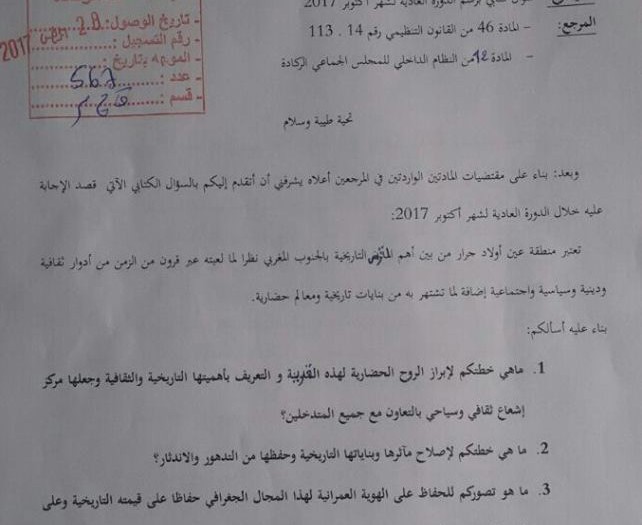 سؤال كتابي برسم الدورة العادية لشهر أكتوبر 2017
المرجع: – المادة 46 من القانون التنظيمي رقم 14 . 113
– المادة 12 من النظام الداخلي للمجلس الجماعي الركادة
- تاريخ الوصول: 28 2017
- رقم التسجيل:
بتاريخ:
- عدد : 567
- قسم :
تحية طيبة وسلام
وبعد: بناء على مقتضيات المادتين الواردتين في المرجعين أعلاه يشرفني أن أتقدم إليكم بالسؤال الكتابي الآتي قصد الإجابة
عليه خلال الدورة العادية لشهر أكتوبر 2017:
تعتبر منطقة عين أولاد جرار من بين أهم التاريخية بالجنوب المغربي نظرا لما لعبته عبر قرون من الزمن من أدوار ثقافية
ودينية وسياسية واجتماعية إضافة لما تشتهر به من بنايات تاريخية ومعالم حضارية.
بناء عليه أسألكم:
1. ماهي خطتكم لإبراز الروح الحضارية لهذه و التعريف بأهميتها التاريخية والثقافية وجعلها مركز
إشعاع ثقافي وسياحي بالتعاون مع جميع المتدخلين؟
2. ما هي خطتكم لإصلاح مآثرها وبناياتها التاريخية وحفظها من التدهور والاندثار؟
3. ما هو تصوركم للحفاظ على الهوية العمرانية لهذا المجال الجغرافي حفاظا على قيمته التاريخية وعلى